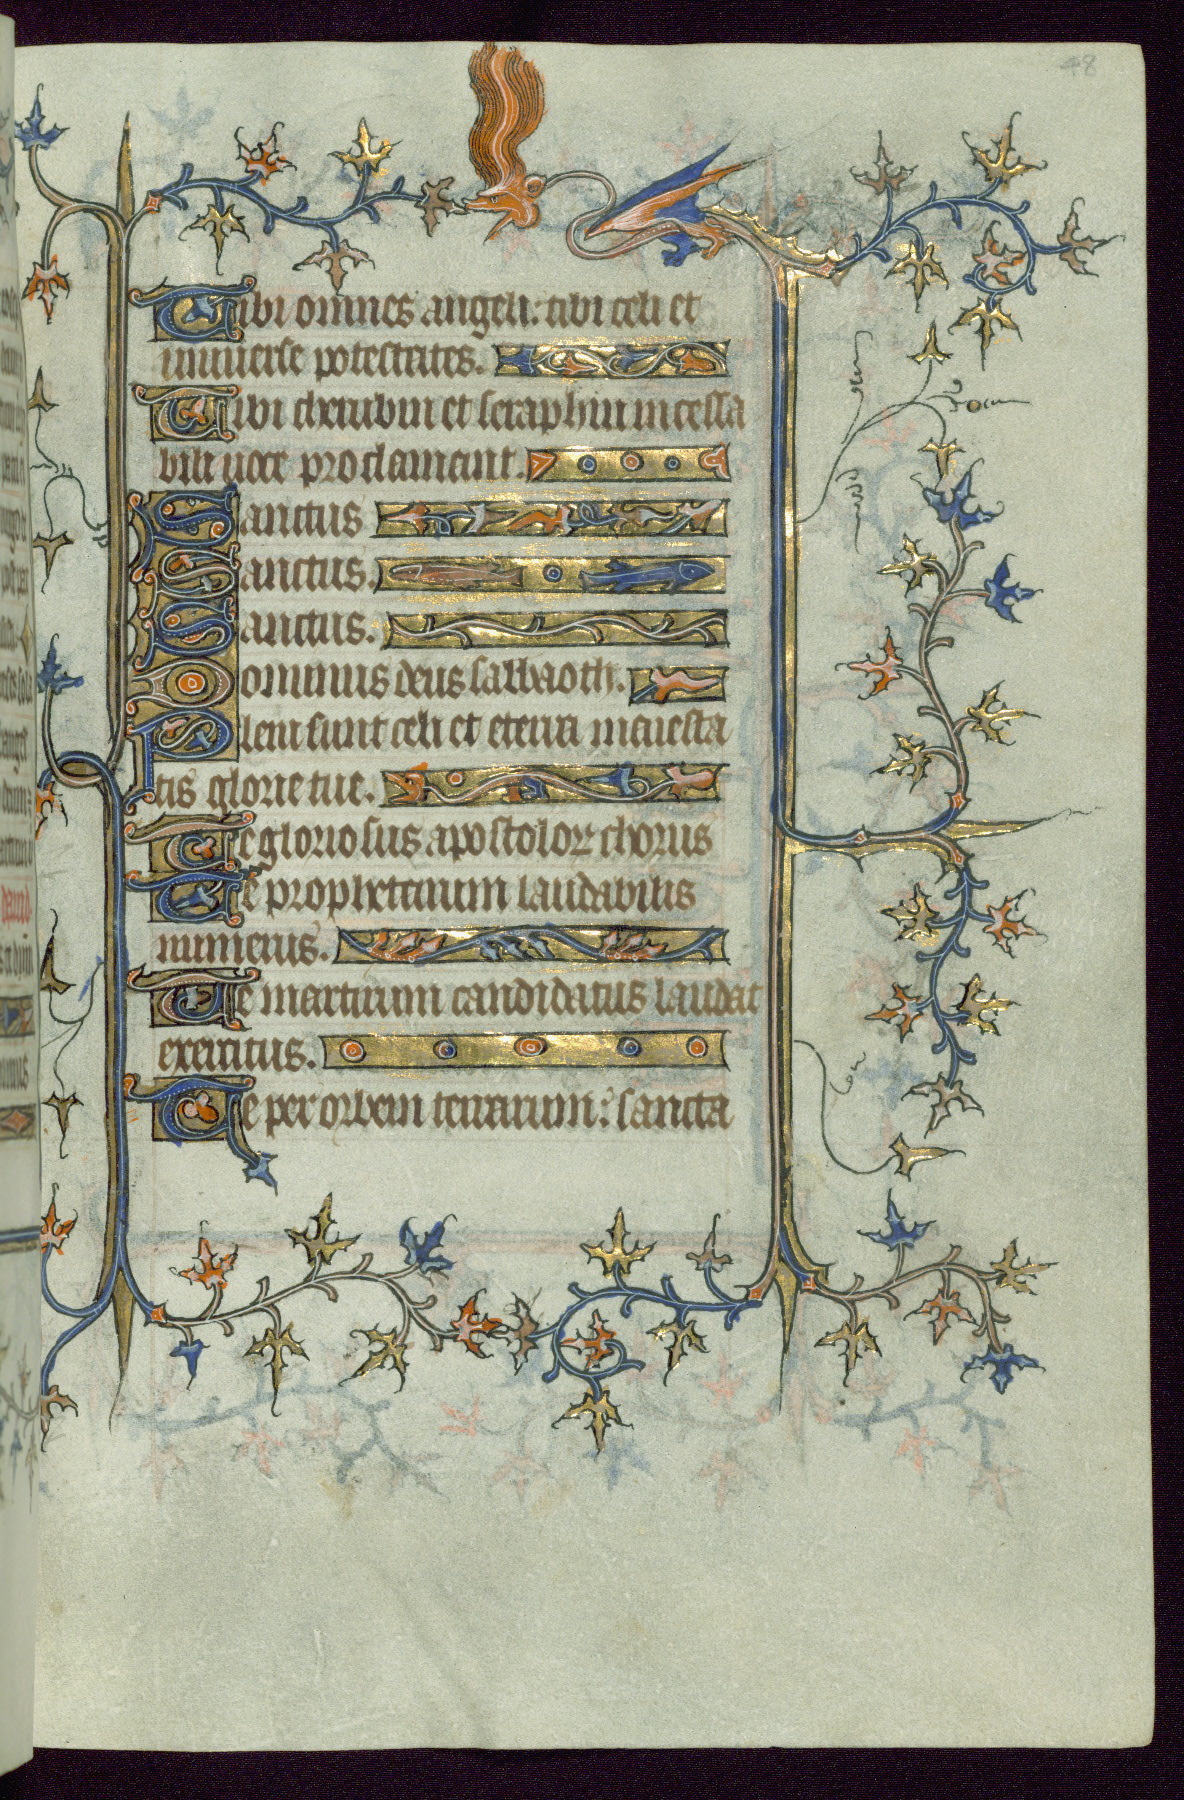 48
Tibi omnes angeli: tibi celi et
uniuerse potestates.
Tibi cherubin et seraphin incessa
bili uoce proclamant.
Sanctus
Sanctus.
Sanctus.
Dominus deus sabbaoth.
Pleni sunt celi et terra maiesta
tis glorie tue.
Te gloriosus apostoloꝝ chorus
Te prophetarum laudabilis
numerus.
Te martirum candidatus laudat
exercitus.
Te per orbem terrarum: sancta